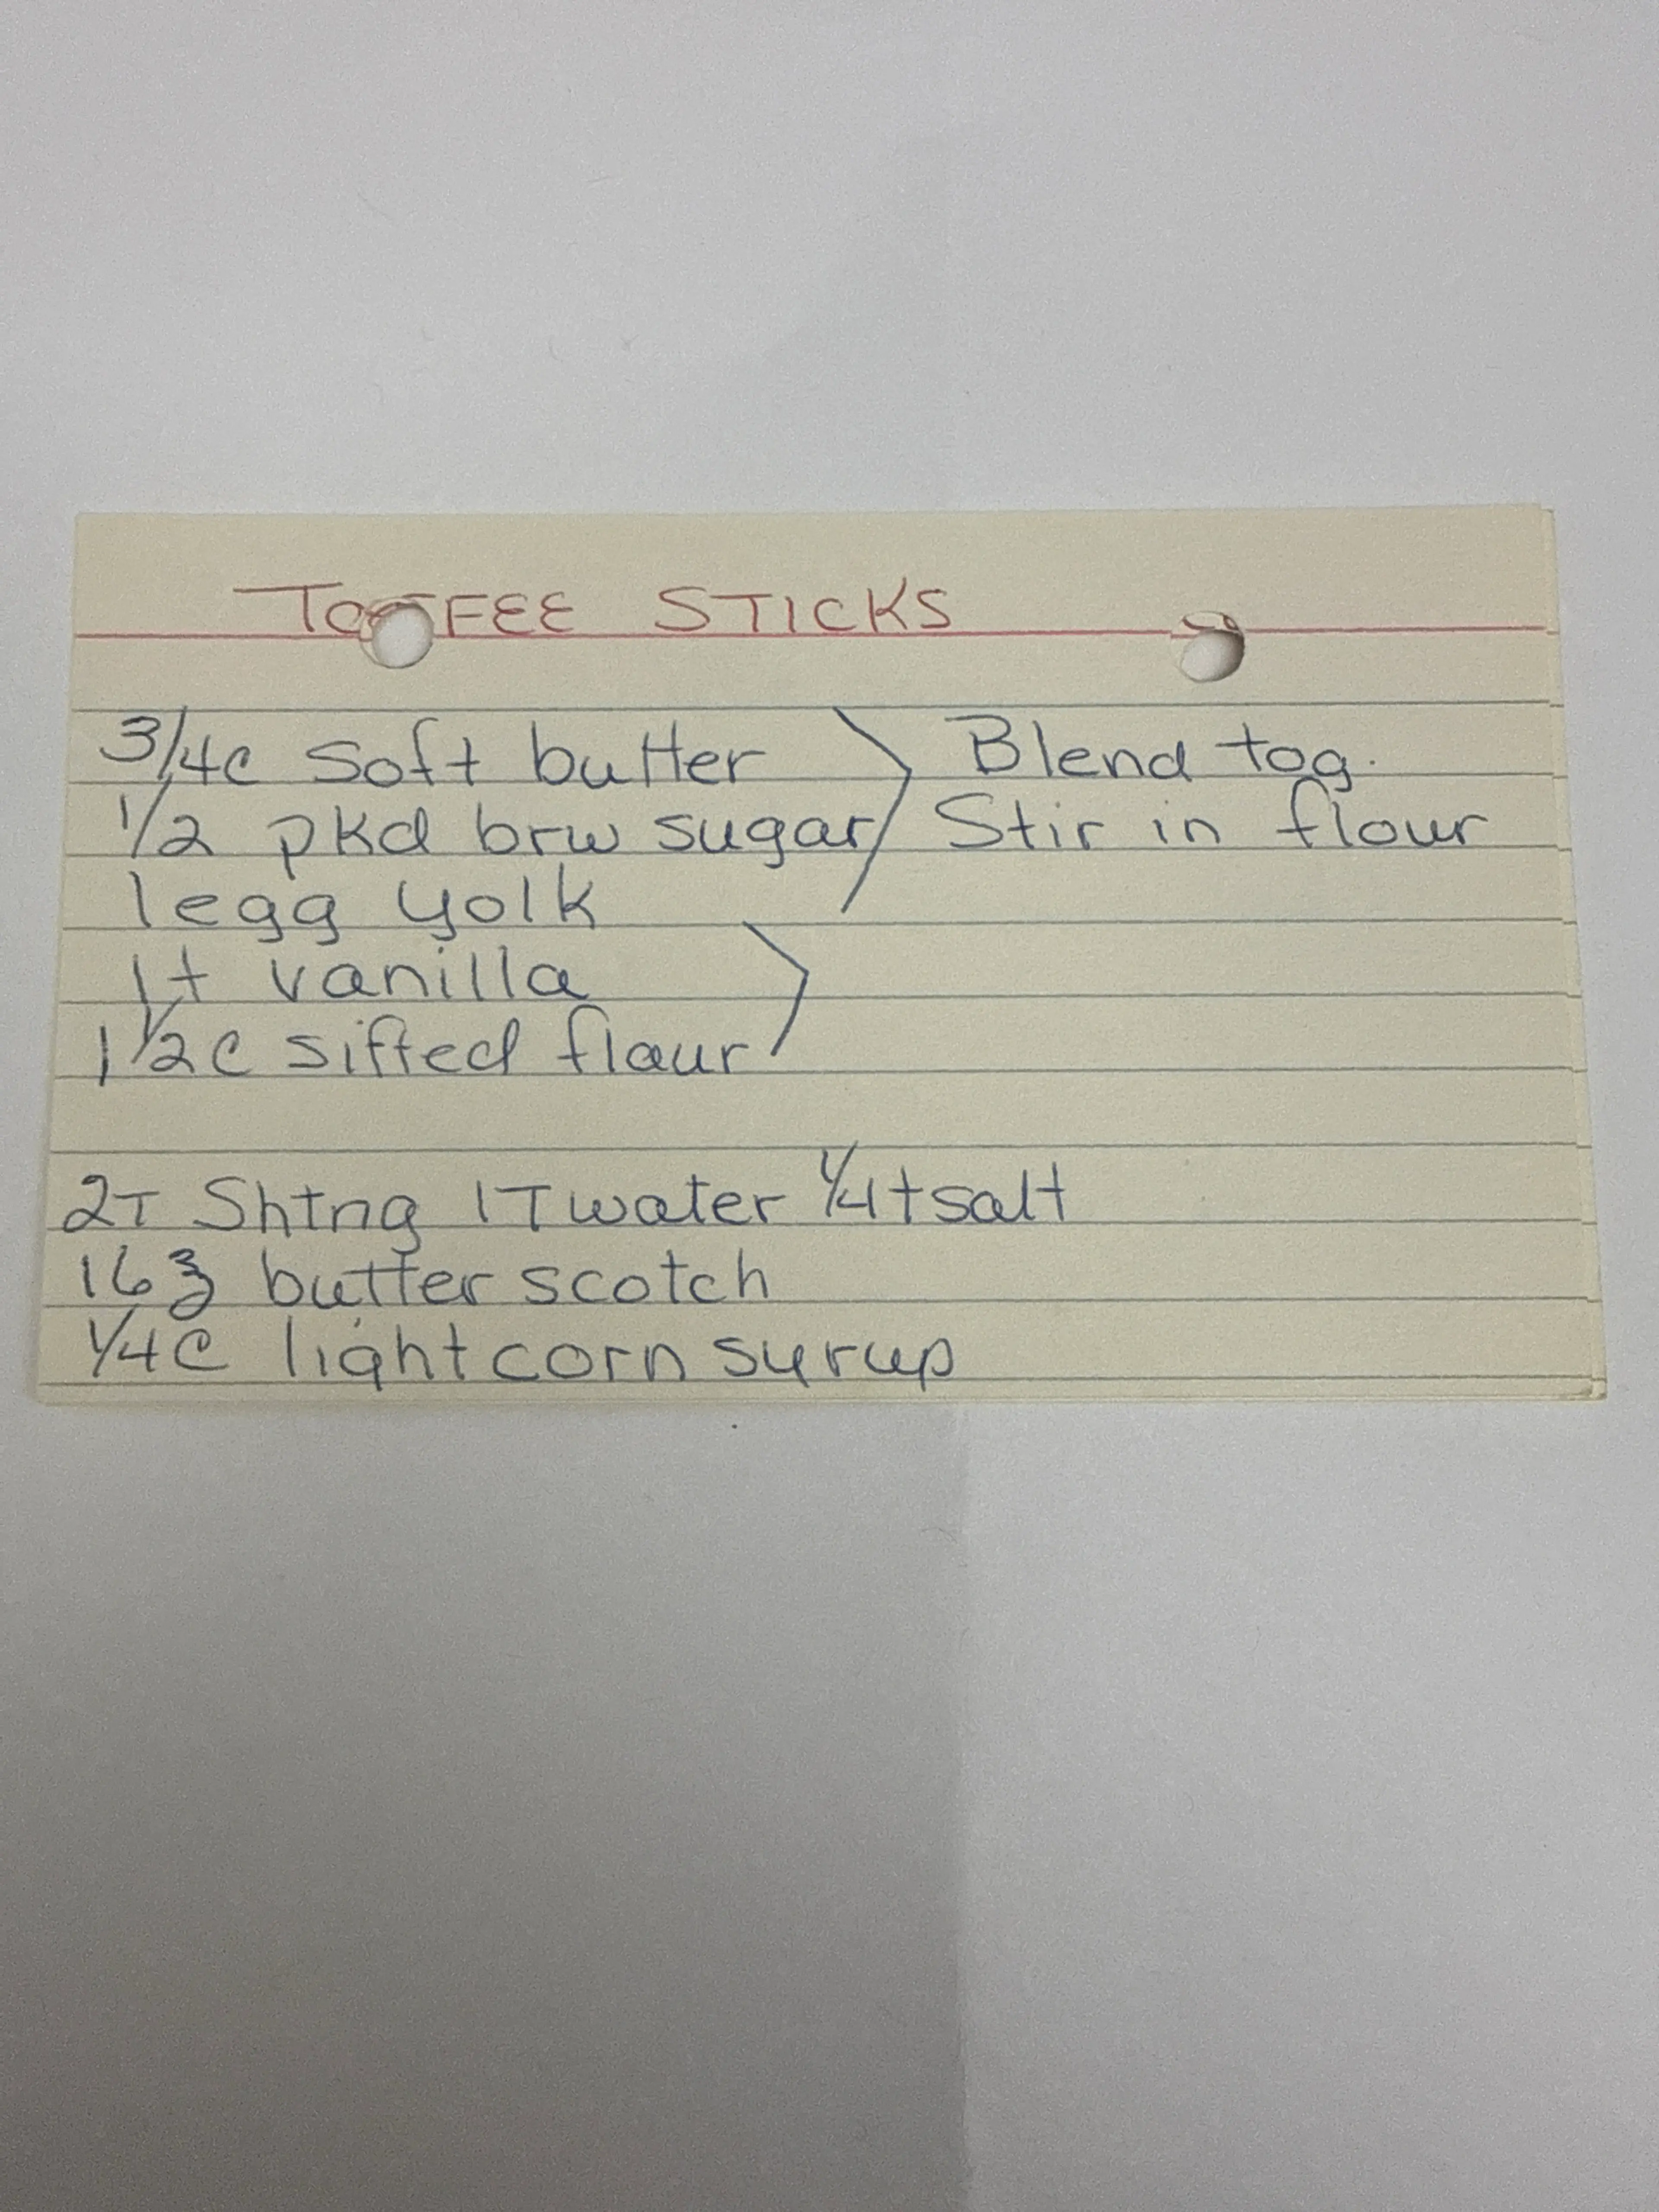 TOFFEE STICKS
3/4c Soft butter Blend tog.
1/2 pkd brw sugar Stir in flour
1 egg yolk
1t vanilla
1 1/2c sifted flour
2T Shtng 1T water 1/4t salt
16 ℥ butterscotch
1/4c light corn syrup